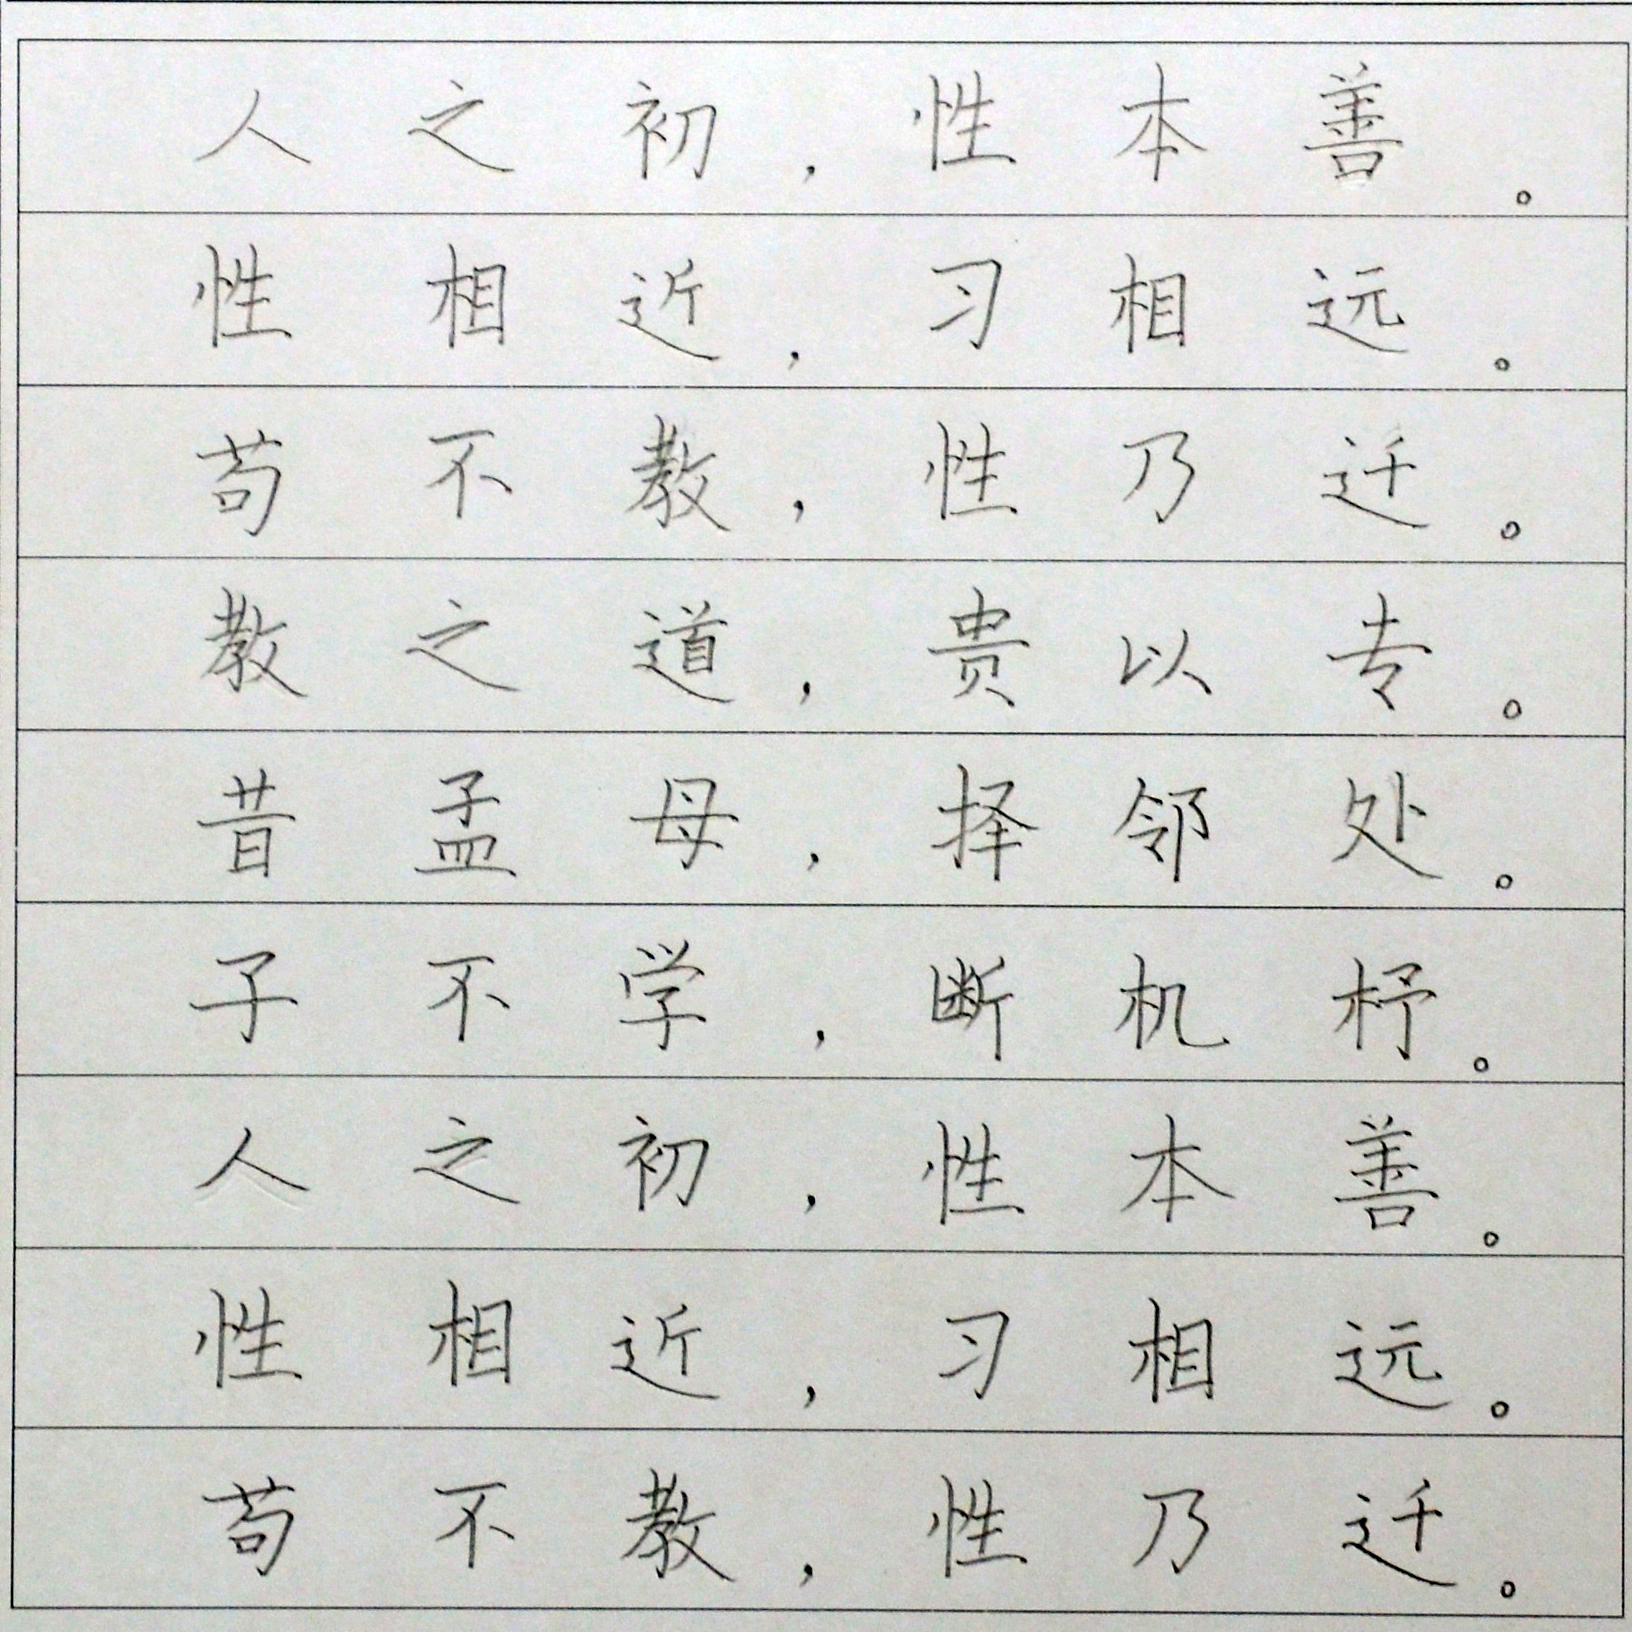 人之初，性本善。
性相近，习相远。
苟不教，性乃迁。
教之道，贵以专。
昔孟母，择邻处。
子不学，断机杼。
人之初，性本善。
性相近，习相远。
苟不教，性乃迁。